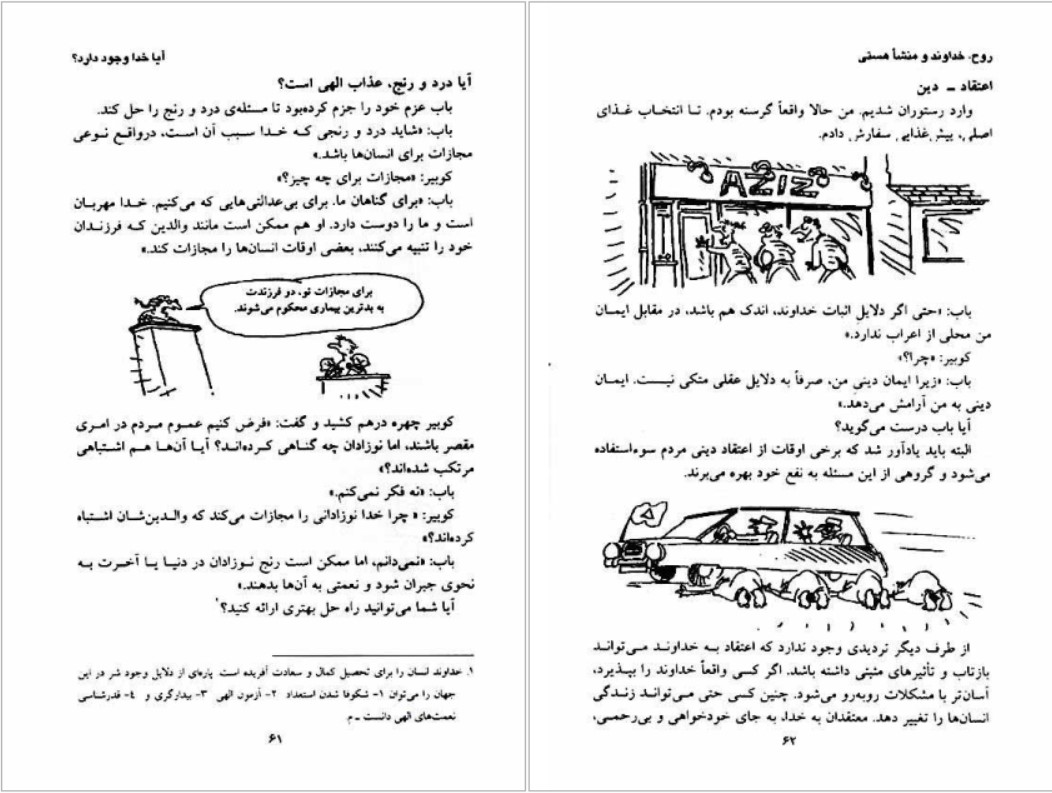 آیا خدا وجود دارد؟
آیا درد و رنج، عذاب الهی است؟
باب عزم خود را جزم کرده‌بود تا مسئله‌ی درد و رنج را حل کند.
باب: «شاید درد و رنجی که خدا سبب آن است، درواقع نوعی
مجازات برای انسان‌ها باشد.»
کوبیر: «مجازات برای چه چیز؟»
باب: «برای گناهان ما. برای بی‌عدالتی‌هایی که می‌کنیم. خدا مهربان
است و ما را دوست دارد. او هم ممکن است مانند والدین که فرزندان
خود را تنبیه می‌کنند، بعضی اوقات انسان‌ها را مجازات کند.»
برای مجازات تو، دو فرزندت
به بدترین بیماری محکوم می‌شوند.
کوبیر چهره درهم کشید و گفت: «فرض کنیم عموم مردم در امری
مقصر باشند، اما نوزادان چه گناهی کرده‌اند؟ آیا آن‌ها هم اشتباهی
مرتکب شده‌اند؟»
باب: «نه فکر نمی‌کنم.»
کوبیر: « چرا خدا نوزادانی را مجازات می‌کند که والدین‌شان اشتباه
کرده‌اند؟»
باب: «نمی‌دانم، اما ممکن است رنج نوزادان در دنیا یا آخرت به
نحوی جبران شود و نعمتی به آن‌ها بدهند.»
آیا شما می‌توانید راه حل بهتری ارائه کنید؟¹
۱. خداوند انسان را برای تحصیل کمال و سعادت آفریده است پاره‌ای از دلایل وجود شر در این
جهان را می‌توان ۱- شکوفا شدن استعداد ۲- آزمون الهی ۳- بیدارگری و ۴- قدرشناسی
نعمت‌های الهی دانست ـ م.
۶۱
روح، خداوند و منشأ هستی
اعتقاد ـ دین
وارد رستوران شدیم. من حالا واقعاً گرسنه بودم. تا انتخاب غذای
اصلی، پیش‌غذایی سفارش دادم.
AZIZ
باب: «حتی اگر دلایل اثبات خداوند، اندک هم باشد، در مقابل ایمان
من محلی از اعراب ندارد.»
کوبیر: «چرا؟»
باب: «زیرا ایمان دینی من، صرفاً به دلایل عقلی متکی نیست. ایمان
دینی به من آرامش می‌دهد.»
آیا باب درست می‌گوید؟
البته باید یادآور شد که برخی اوقات از اعتقاد دینی مردم سوءاستفاده
می‌شود و گروهی از این مسئله به نفع خود بهره می‌برند.
از طرف دیگر تردیدی وجود ندارد که اعتقاد به خداوند می‌تواند
بازتاب و تأثیرهای مثبتی داشته باشد. اگر کسی واقعاً خداوند را بپذیرد،
آسان‌تر با مشکلات روبه‌رو می‌شود. چنین کسی حتی می‌تواند زندگی
انسان‌ها را تغییر دهد. معتقدان به خدا، به جای خودخواهی و بی‌رحمی،
۶۲